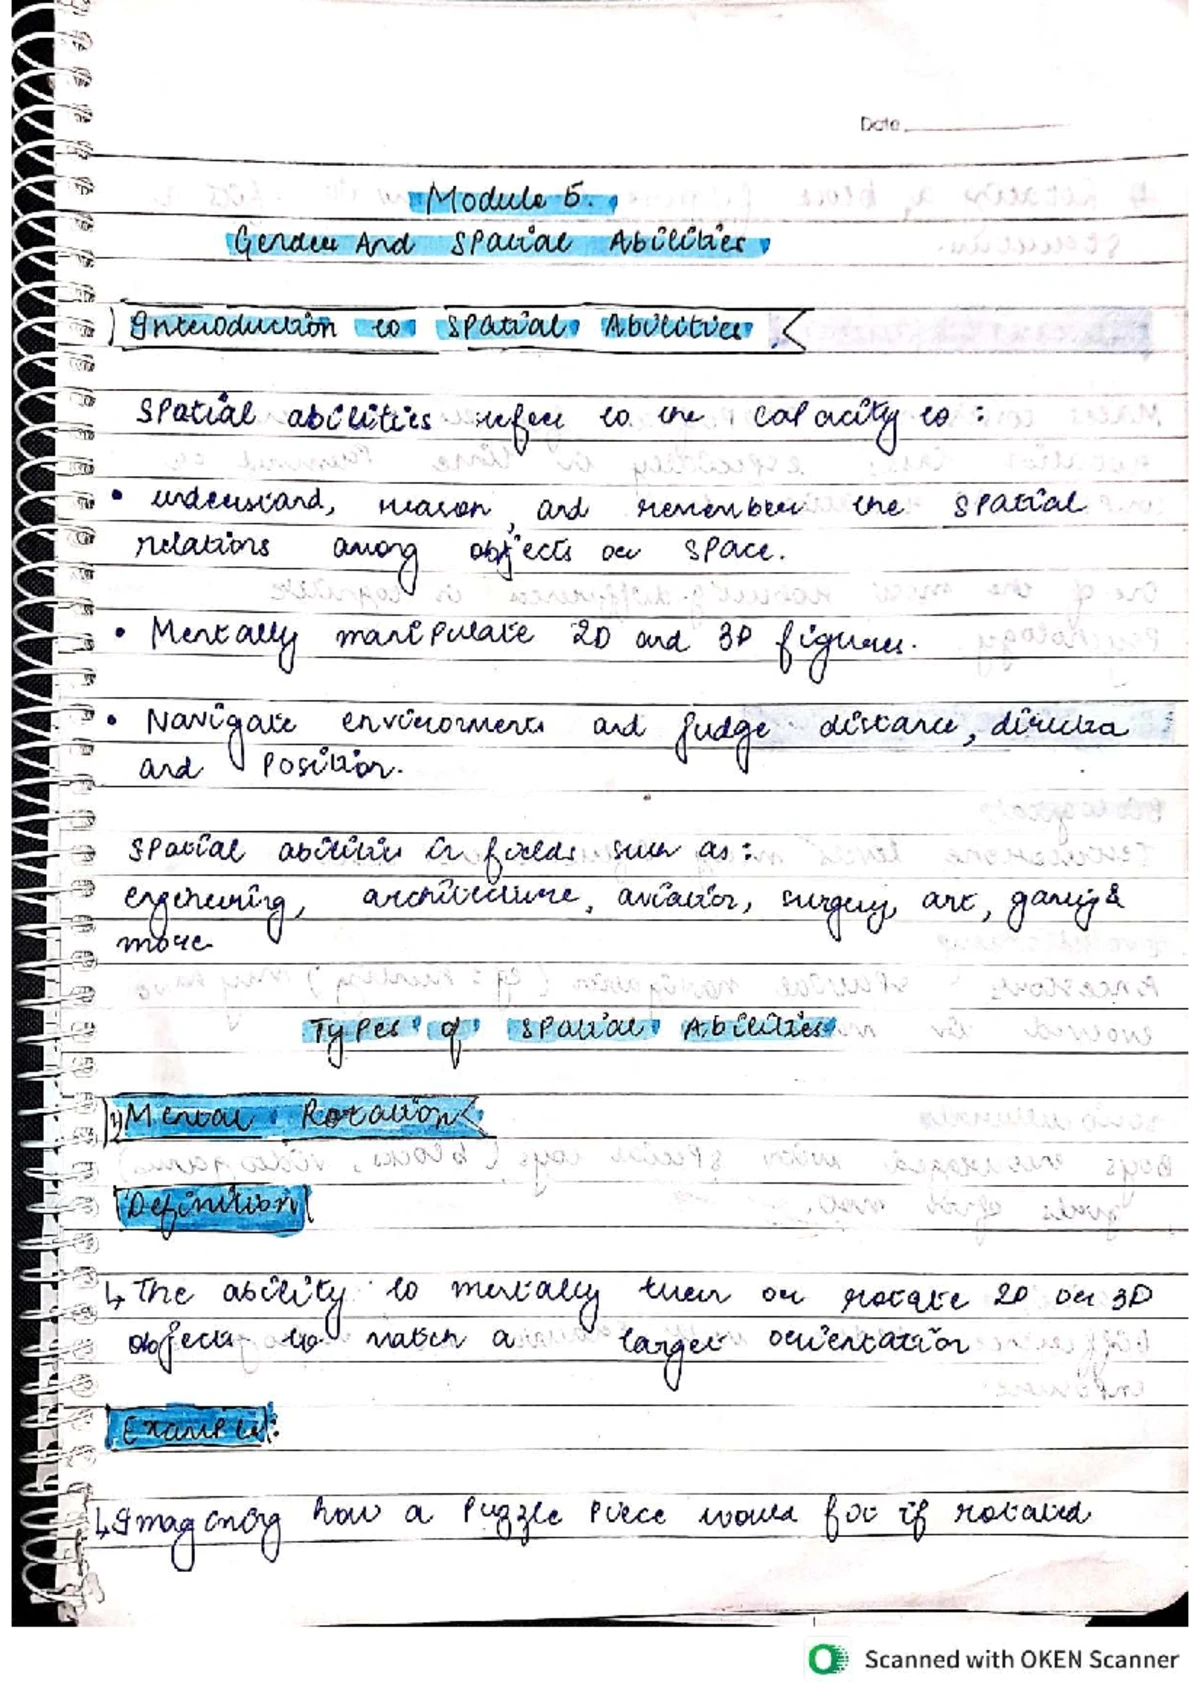 Date
Module 5.
Gender And Spatial Abilities
1) Introduction to Spatial Abilities
Spatial abilities refer to the capacity to :
• understand, reason, and remember the spatial
relations among objects or space.
• Mentally manipulate 2D and 3D figures.
• Navigate environments and judge distance, direction
and position.
Spatial abilities in fields such as :
engineering, architecture, aviation, surgery, art, gaming &
more
Types of Spatial Abilities
1) Mental Rotation
Definition
↳ The ability to mentally turn or rotate 2D or 3D
objects to match a target orientation
Examples:
↳ Imagining how a puzzle piece would fit if rotated
Scanned with OKEN Scanner